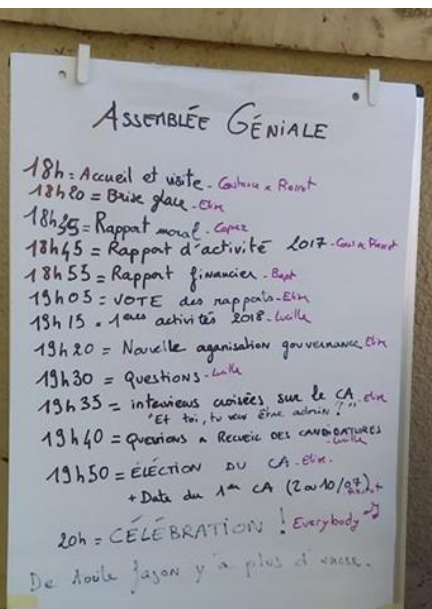 ASSEMBLÉE GÉNIALE
18h = Accueil et visite - Pierrot
18h20 = Brise glace - Elise
18h35 = Rapport moral -
18h45 = Rapport d'activité 2017 -
18h55 = Rapport financier - Bapt
19h05 = VOTE des rapports - Elise
19h15 = 1ères activités 2018 - Lucille
19h20 = Nouvelle organisation gouvernance Elise
19h30 = Questions - Lucille
19h35 = interviews croisées sur le CA - Elise
"Et toi, tu veux être admin ?"
19h40 = QUESTIONS & RECUEIL DES CANDIDATURES
Lucille
19h50 = ÉLECTION DU CA - Elise -
+ Date du 1er CA (2 ou 10/07) Pierrot
20h = CÉLÉBRATION ! Everybody
De toute façon y'a plus d'encre.